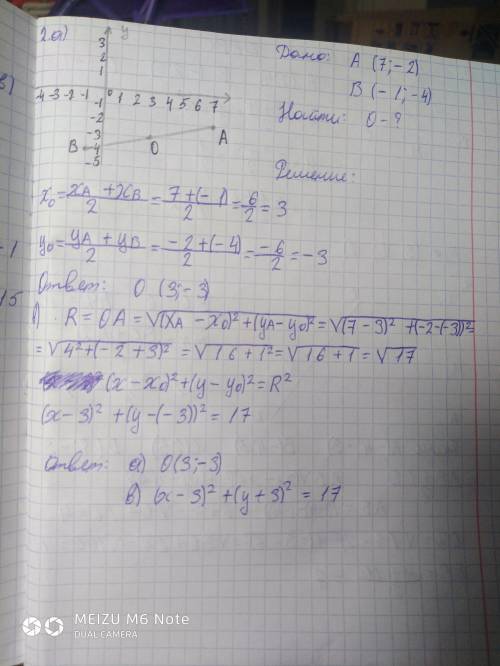 2.а)
y
3
2
1
-4 -3 -2 -1 0 1 2 3 4 5 6 7
-1
-2
-3
-4
-5
A
B
O
Дано: A (7; -2)
B (-1; -4)
Найти: O - ?
Решение:
x₀ = (xA + xB)/2 = (7 + (-1))/2 = 6/2 = 3
y₀ = (yA + yB)/2 = (-2 + (-4))/2 = -6/2 = -3
Ответ: O (3; -3)
R = OA = √(xA - x₀)² + (yA - y₀)² = √(7 - 3)² + (-2 - (-3))² =
= √4² + (-2 + 3)² = √16 + 1² = √16 + 1 = √17
(x - x₀)² + (y - y₀)² = R²
(x - 3)² + (y - (-3))² = 17
Ответ: а) O (3; -3)
в) (x - 3)² + (y + 3)² = 17
в)
-1
15
MEIZU M6 Note
DUAL CAMERA